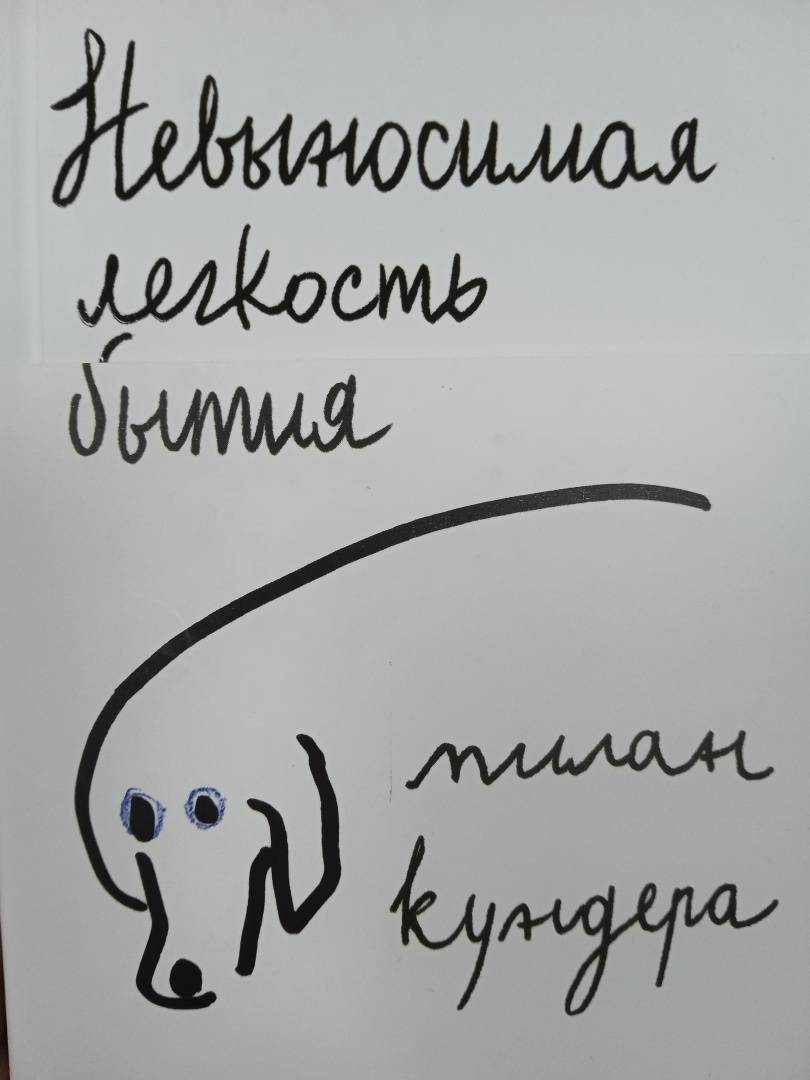 Невыносимая
легкость
бытия
милан
кундера